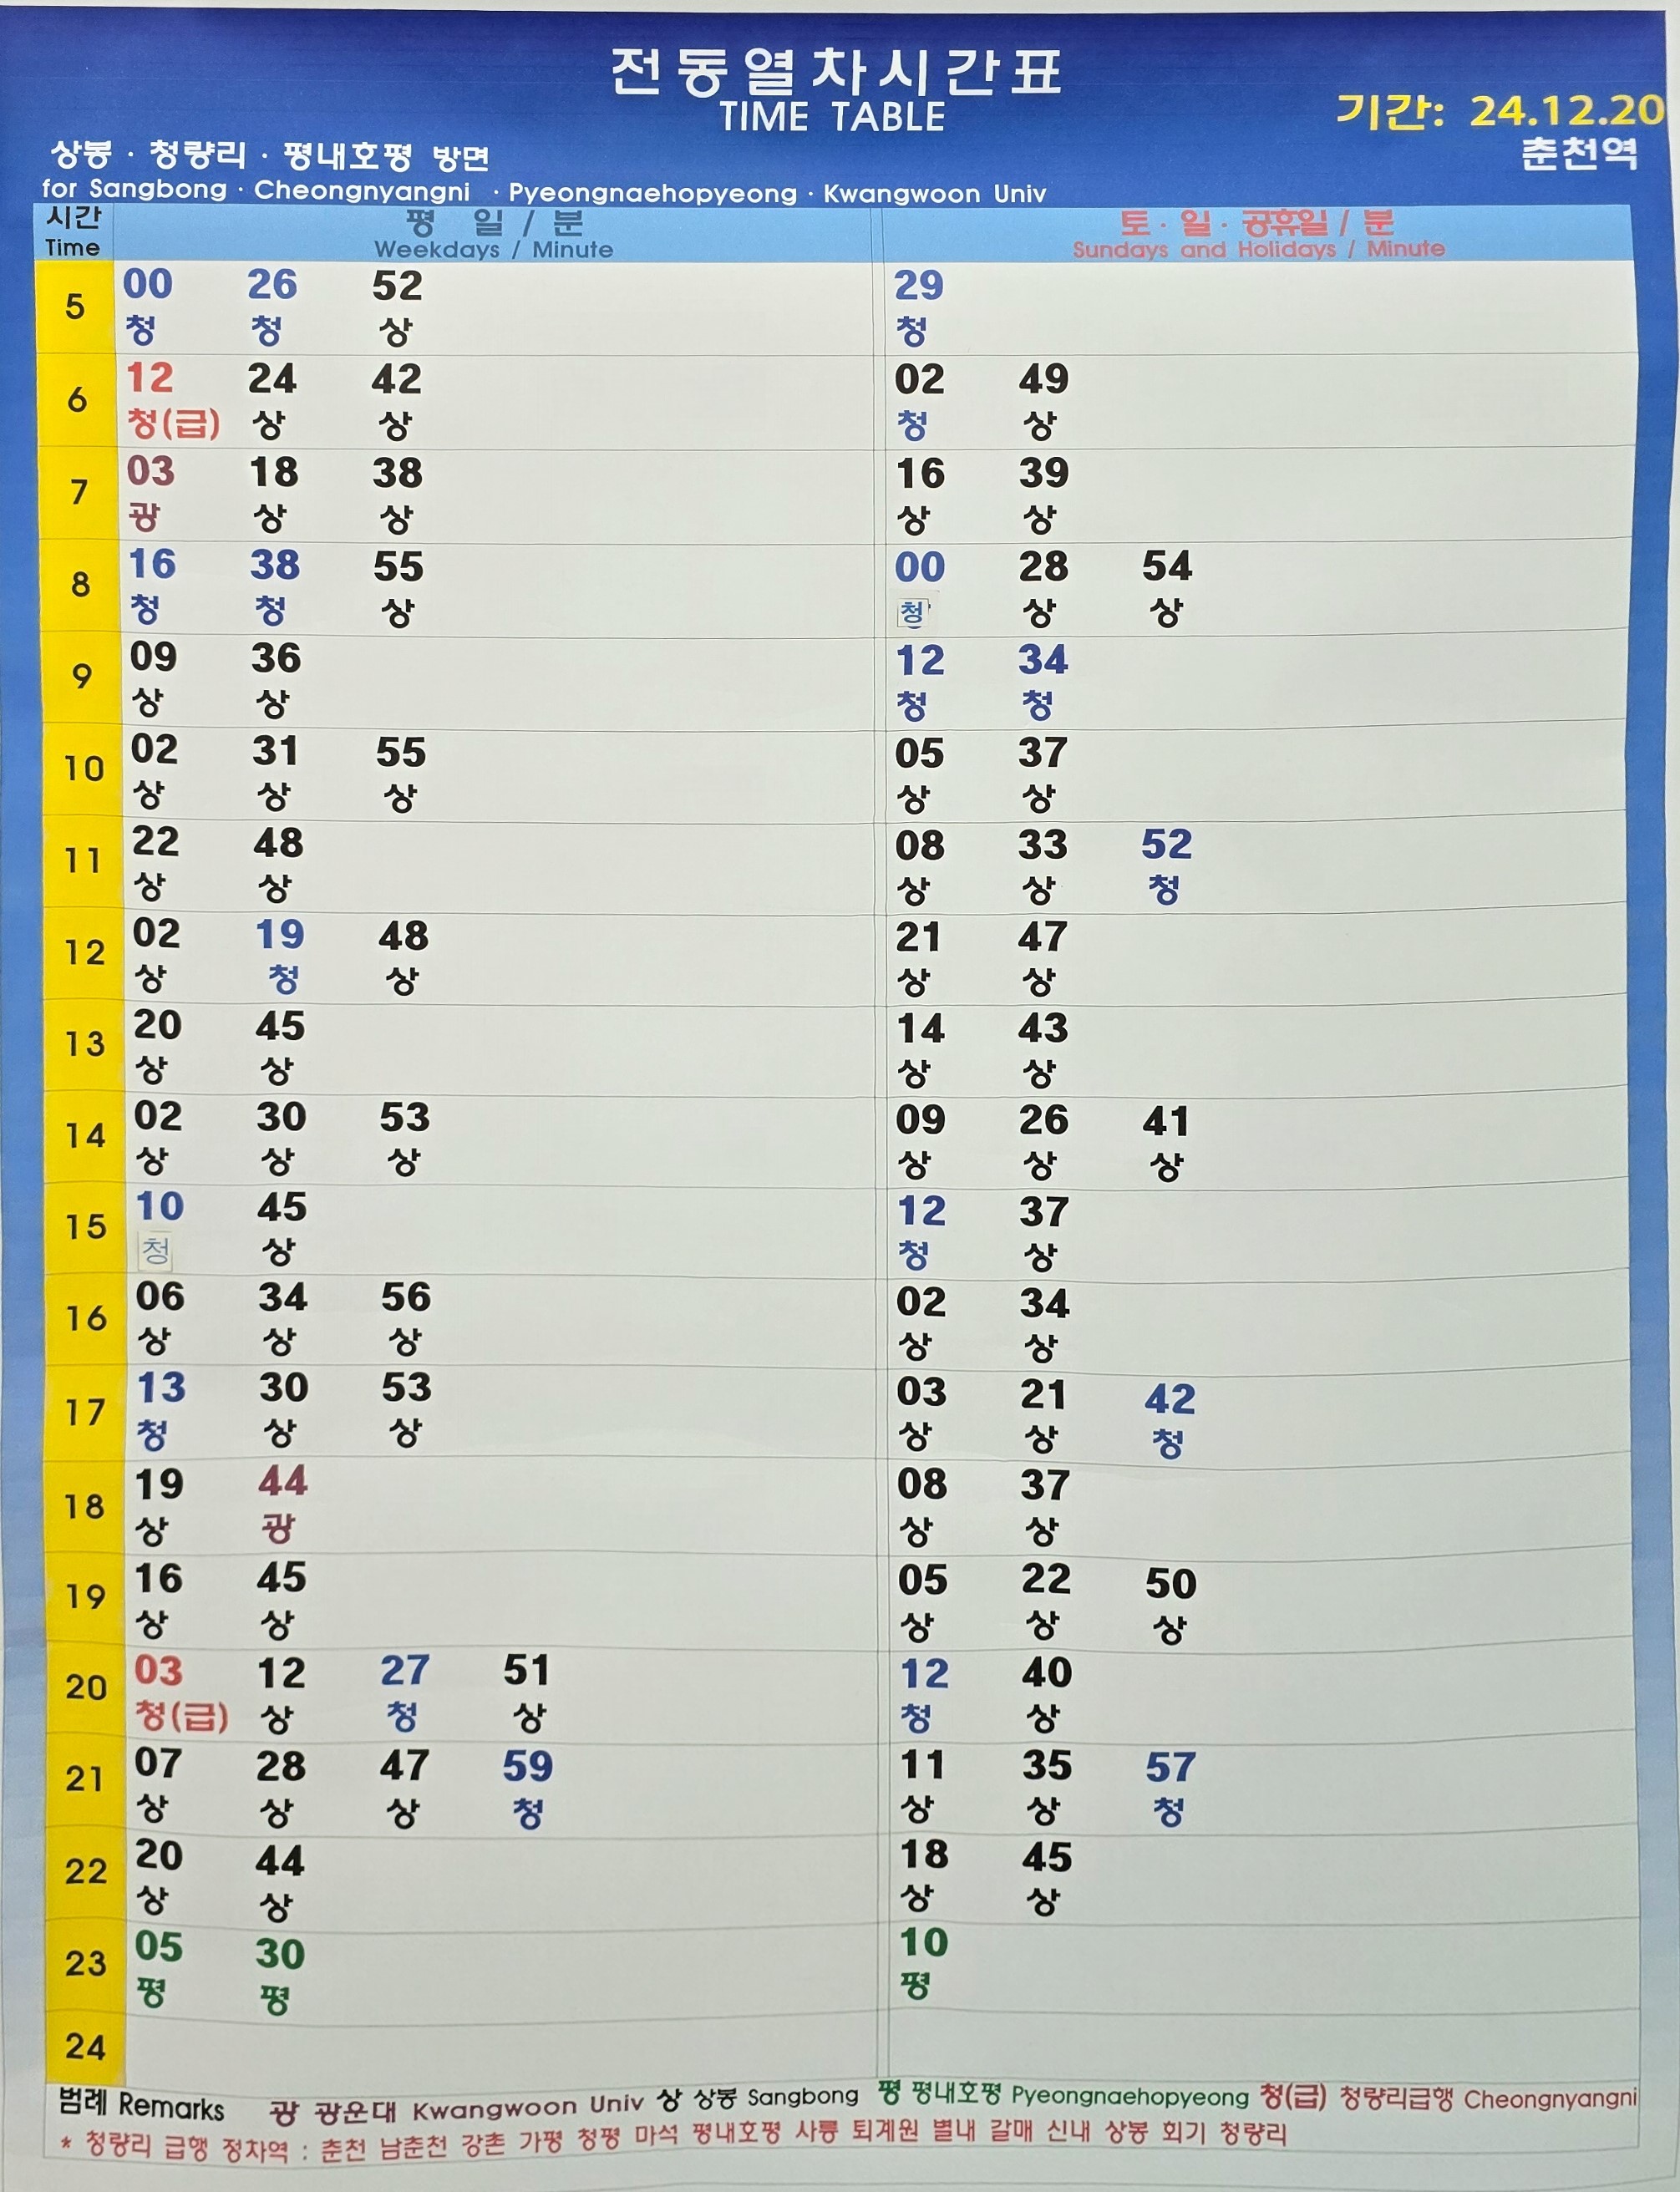 전동열차시간표
TIME TABLE
기간: 24.12.20
춘천역
상봉 · 청량리 · 평내호평 방면
for Sangbong · Cheongnyangni · Pyeongnaehopyeong · Kwangwoon Univ
시간 평 일 / 분 토 · 일 · 공휴일 / 분
Time Weekdays / Minute Sundays and Holidays / Minute
5 00 26 52 29
청 청 상 청
6 12 24 42 02 49
청(급) 상 상 청 상
7 03 18 38 16 39
광 상 상 상 상
8 16 38 55 00 28 54
청 청 상 청 상 상
9 09 36 12 34
상 상 청 청
10 02 31 55 05 37
상 상 상 상 상
11 22 48 08 33 52
상 상 상 상 청
12 02 19 48 21 47
상 청 상 상 상
13 20 45 14 43
상 상 상 상
14 02 30 53 09 26 41
상 상 상 상 상 상
15 10 45 12 37
청 상 청 상
16 06 34 56 02 34
상 상 상 상 상
17 13 30 53 03 21 42
청 상 상 상 상 청
18 19 44 08 37
상 광 상 상
19 16 45 05 22 50
상 상 상 상 상
20 03 12 27 51 12 40
청(급) 상 청 상 청 상
21 07 28 47 59 11 35 57
상 상 상 청 상 상 청
22 20 44 18 45
상 상 상 상
23 05 30 10
평 평 평
24
범례 Remarks 광 광운대 Kwangwoon Univ 상 상봉 Sangbong 평 평내호평 Pyeongnaehopyeong 청(급) 청량리급행 Cheongnyangni
* 청량리 급행 정차역 : 춘천 남춘천 강촌 가평 청평 마석 평내호평 사릉 퇴계원 별내 갈매 신내 상봉 회기 청량리